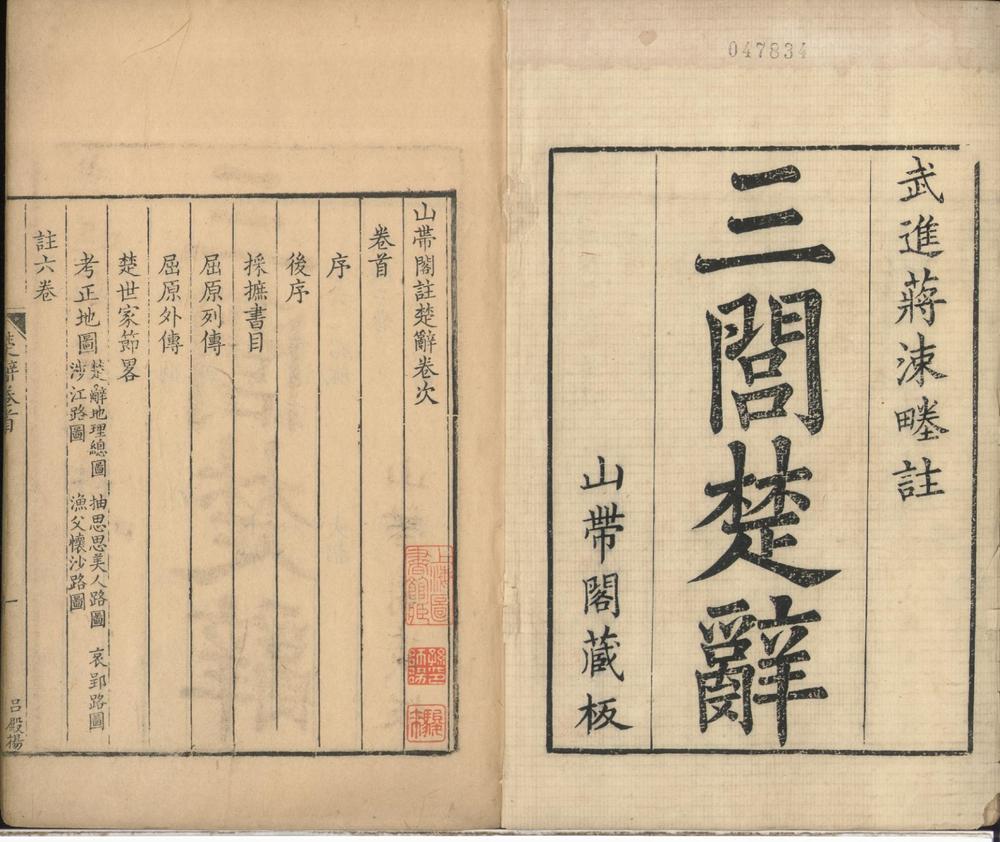 047834
武進蔣涑畻註
三閭楚辭
山帶閣藏板
山帶閣註楚辭卷次
卷首
序
後序
採摭書目
屈原列傳
屈原外傳
楚世家節畧
考正地圖
楚辭地理總圖 抽思思美人路圖 哀郢路圖
涉江路圖 漁父懷沙路圖
註六卷
楚辭卷首
一
呂殿揚